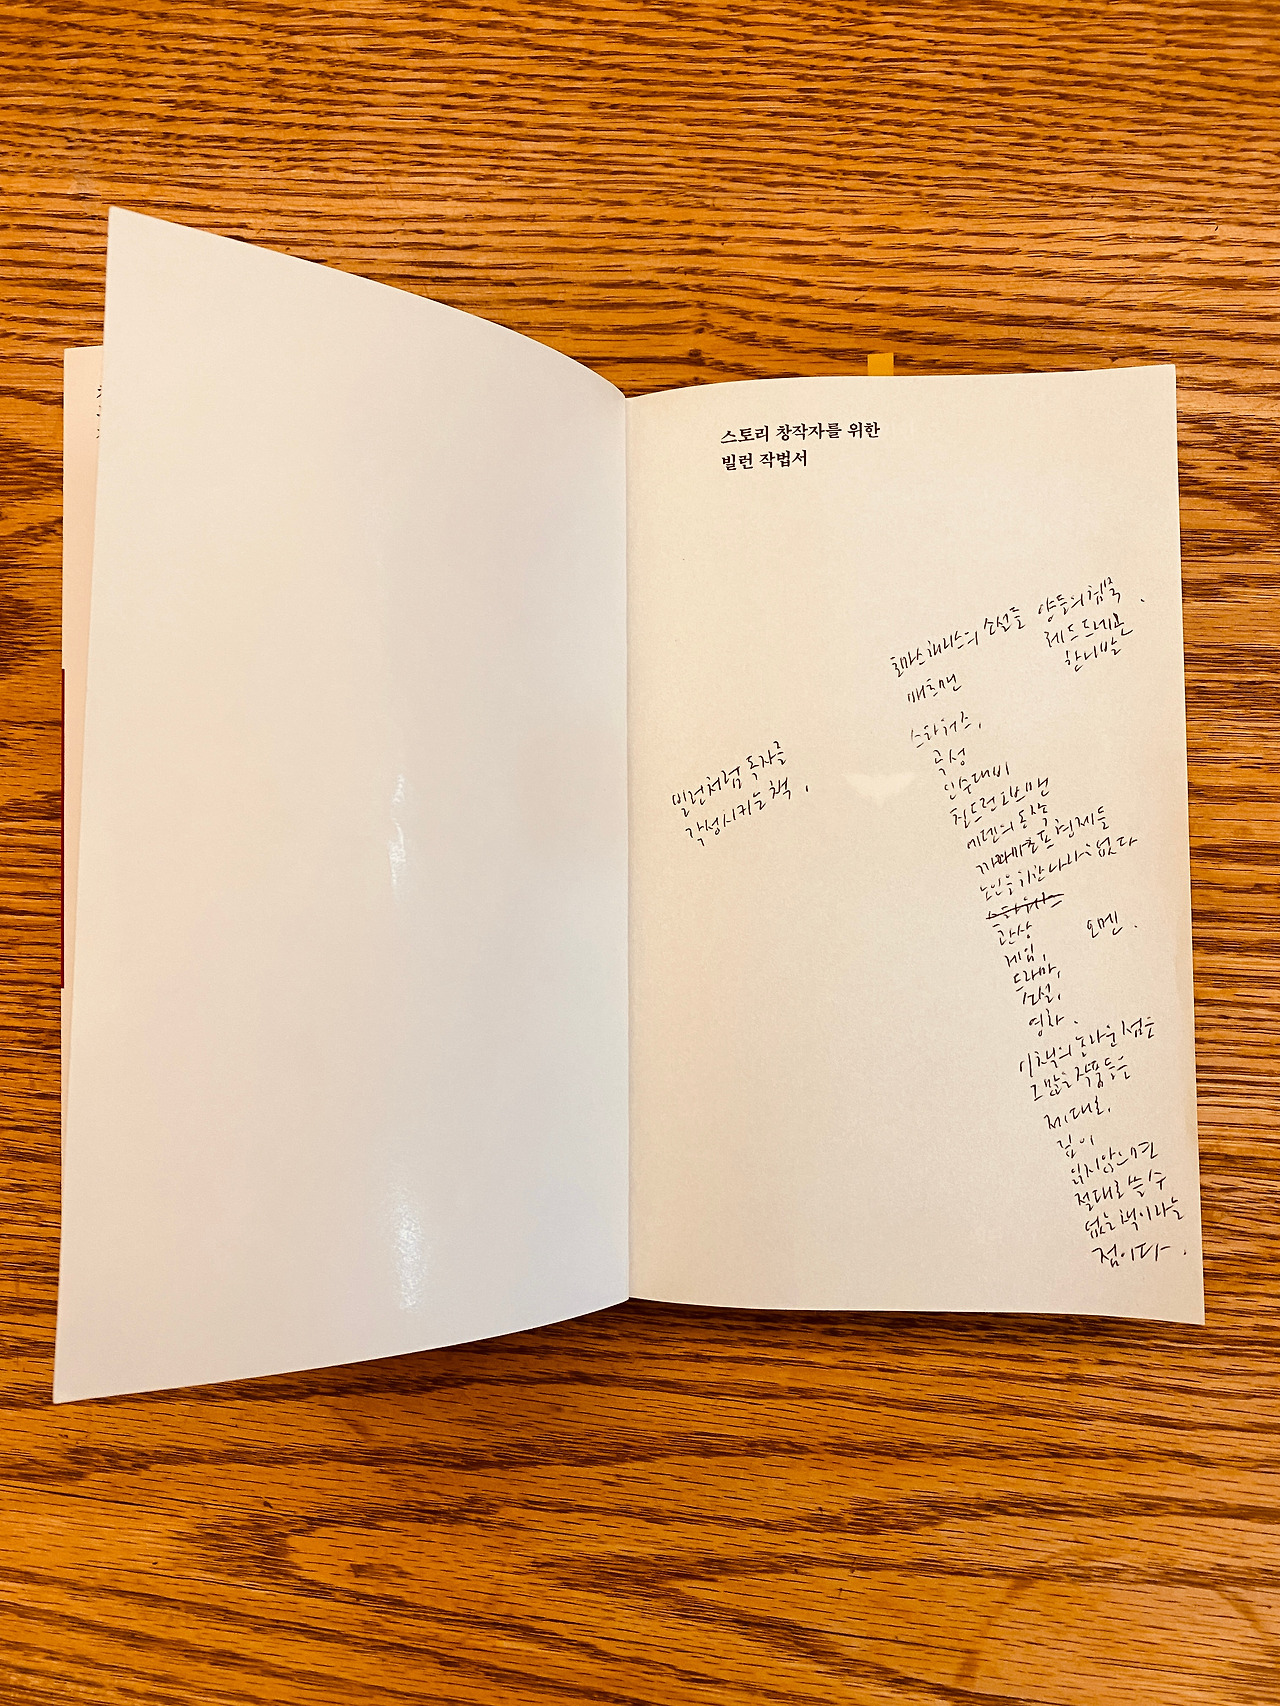 스토리 창작자를 위한
빌런 작법서
토마스해리스의 소설들 양들의침묵.
레드드래곤
한니발
배트맨
스타워즈,
곡성
인수대비
칠드런오브맨
에덴의 동쪽
까라마초프 형제들
노인을위한나라는없다
스타워즈
관상
오멘.
게임,
드라마,
소설,
영화.
빌런처럼 독자를
각성시키는 책.
이책의 놀라운 점은
그많은 작품들을
제대로,
깊이
읽지않으면
절대로 쓸 수
없는 책이라는
점이다.